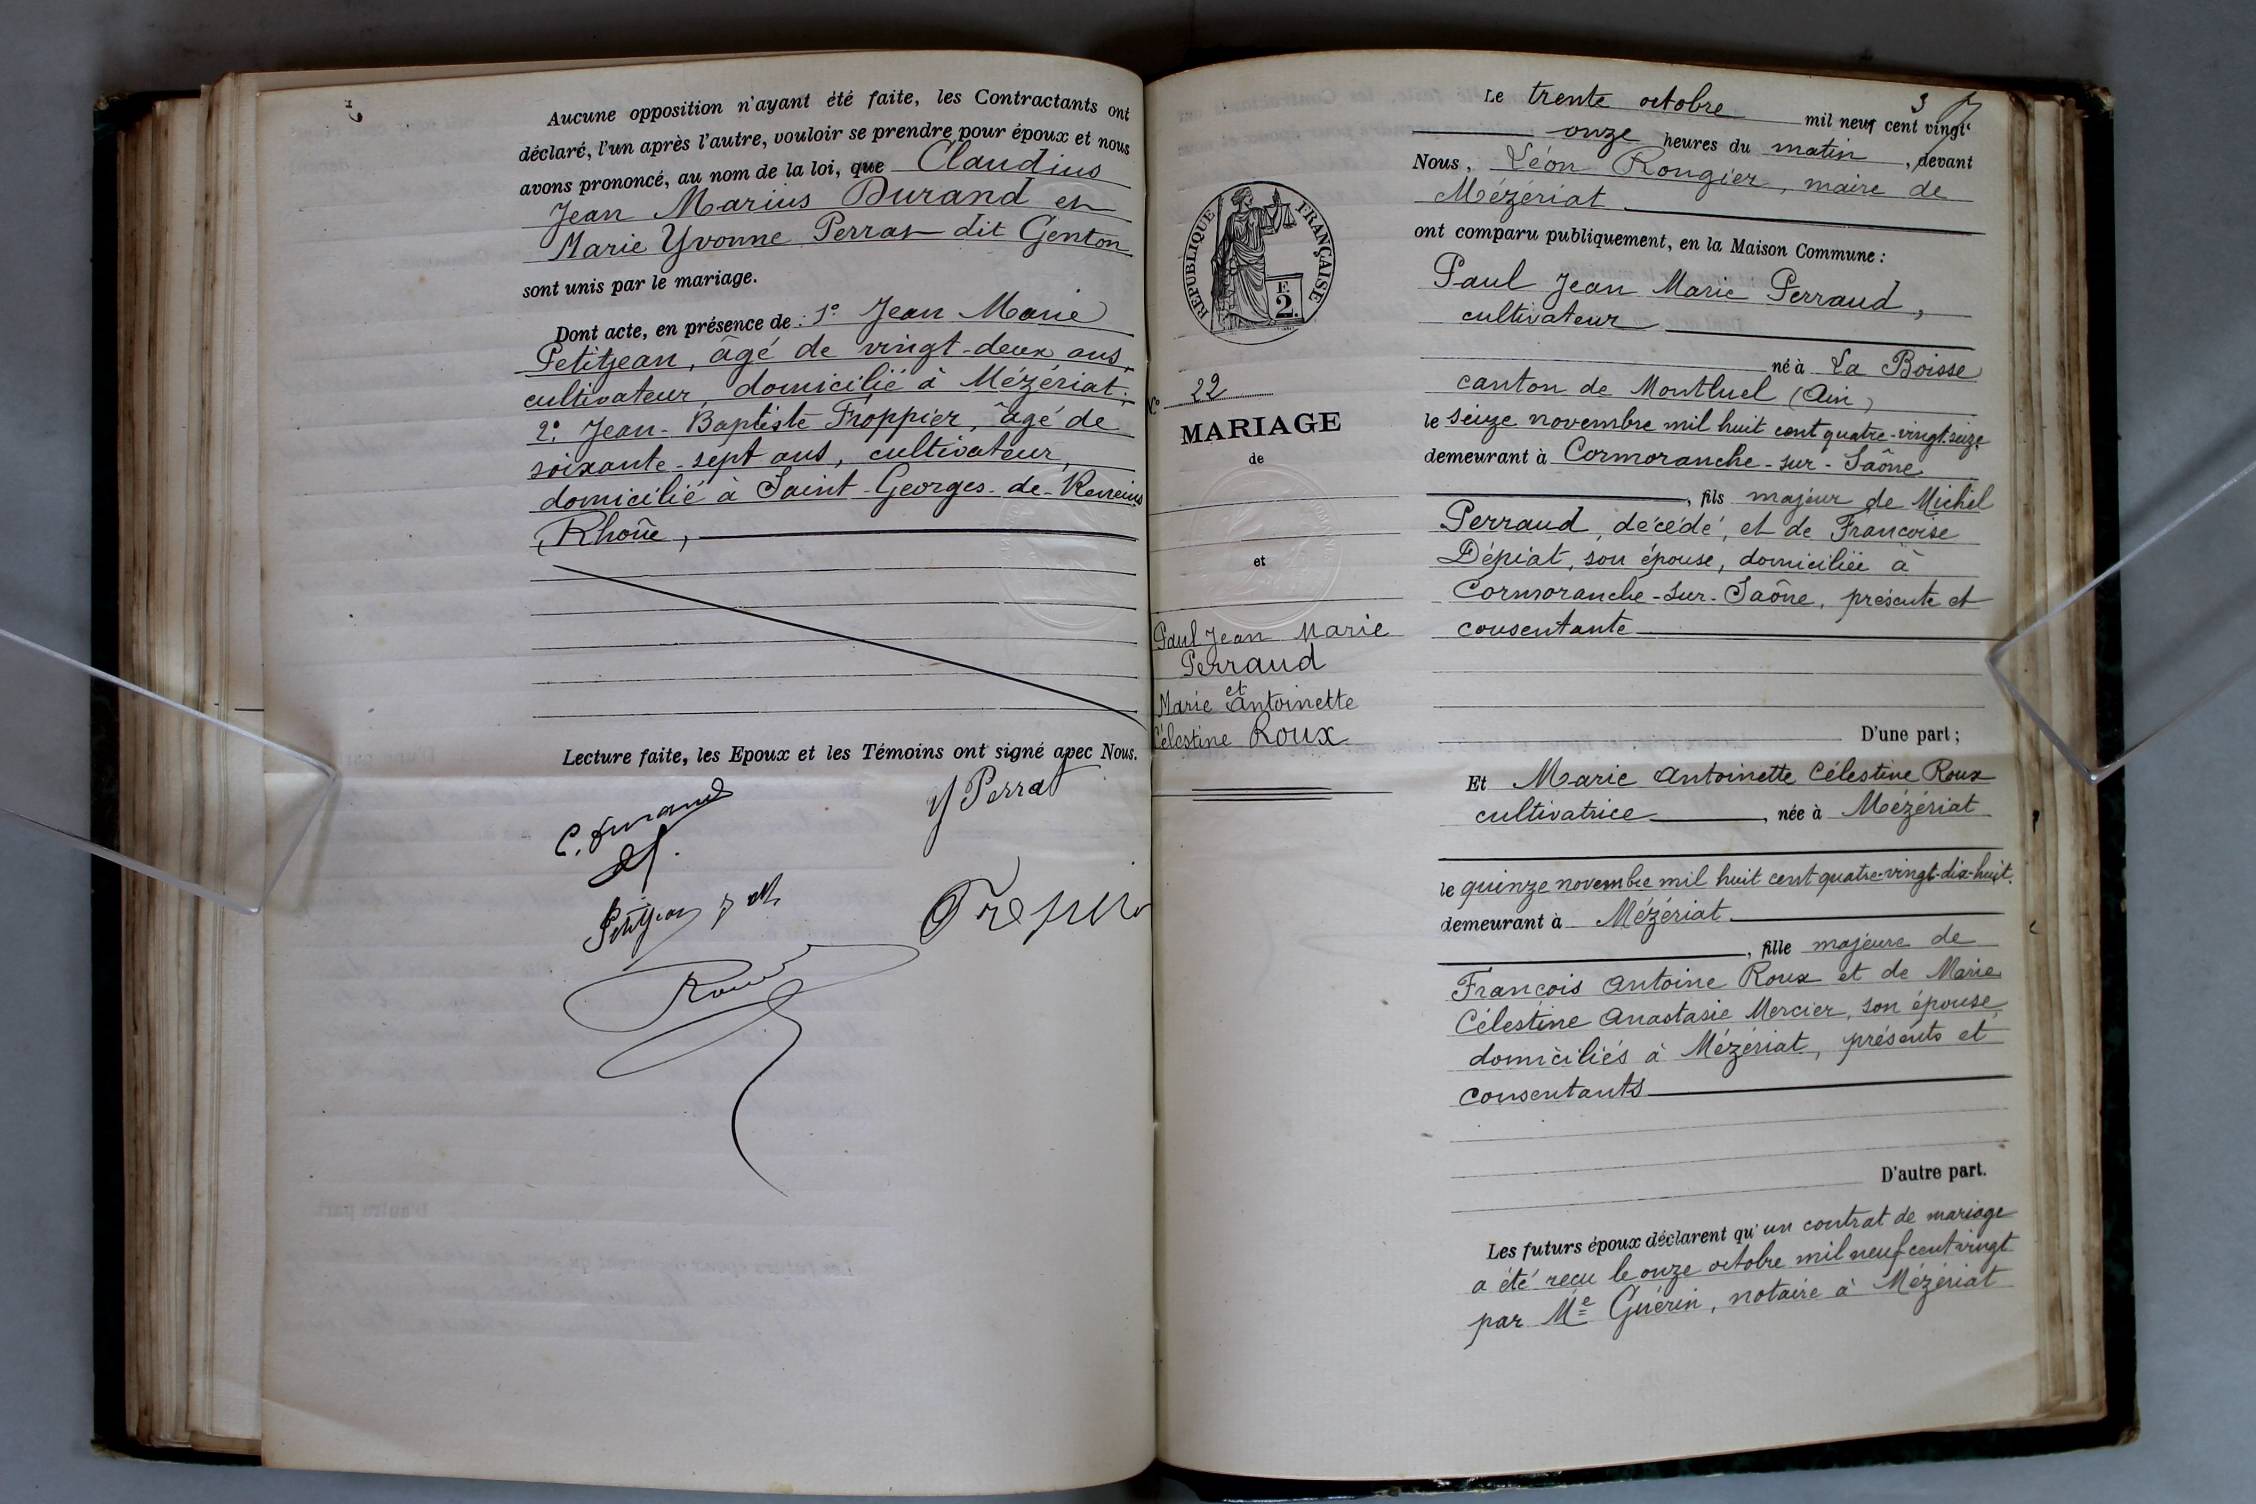 Aucune opposition n'ayant été faite, les Contractants ont
déclaré, l'un après l'autre, vouloir se prendre pour époux et nous
avons prononcé, au nom de la loi, que Claudius
Jean Marius Durand et
Marie Yvonne Perrat dit Genton
sont unis par le mariage.
Dont acte, en présence de : 1º Jean Marie
Petitjean, âgé de vingt-deux ans,
cultivateur, domicilié à Mézériat;
2º Jean-Baptiste Froppier, âgé de
soixante-sept ans, cultivateur,
domicilié à Saint-Georges-de-Reneins
(Rhône)
Lecture faite, les Epoux et les Témoins ont signé avec Nous.
C. Durand
Y Perrat
Petitjean J M
3
Le trente octobre mil neuf cent vingt
onze heures du matin, devant
Nous, Léon Rougier, maire de
Mézériat
ont comparu publiquement, en la Maison Commune :
Paul Jean Marie Perraud,
cultivateur
né à La Boisse
canton de Montluel (Ain)
le seize novembre mil huit cent quatre-vingt-seize
demeurant à Cormoranche-sur-Saône
, fils majeur de Michel
Perraud, décédé, et de Françoise
Dépiat, son épouse, domiciliée à
Cormoranche-sur-Saône, présente et
consentante
D'une part ;
Et Marie Antoinette Célestine Roux
cultivatrice, née à Mézériat
le quinze novembre mil huit cent quatre-vingt-dix-huit
demeurant à Mézériat
, fille majeure de
François Antoine Roux et de Marie
Célestine Anastasie Mercier, son épouse,
domiciliés à Mézériat, présents et
consentants
D'autre part.
Les futurs époux déclarent qu'un contrat de mariage
a été reçu le onze octobre mil neuf cent vingt
par Me Guérin, notaire à Mézériat
RÉPUBLIQUE FRANÇAISE
F.
2.
No 22
MARIAGE
de
et
Paul Jean Marie
Perraud
et
Marie Antoinette
Célestine Roux